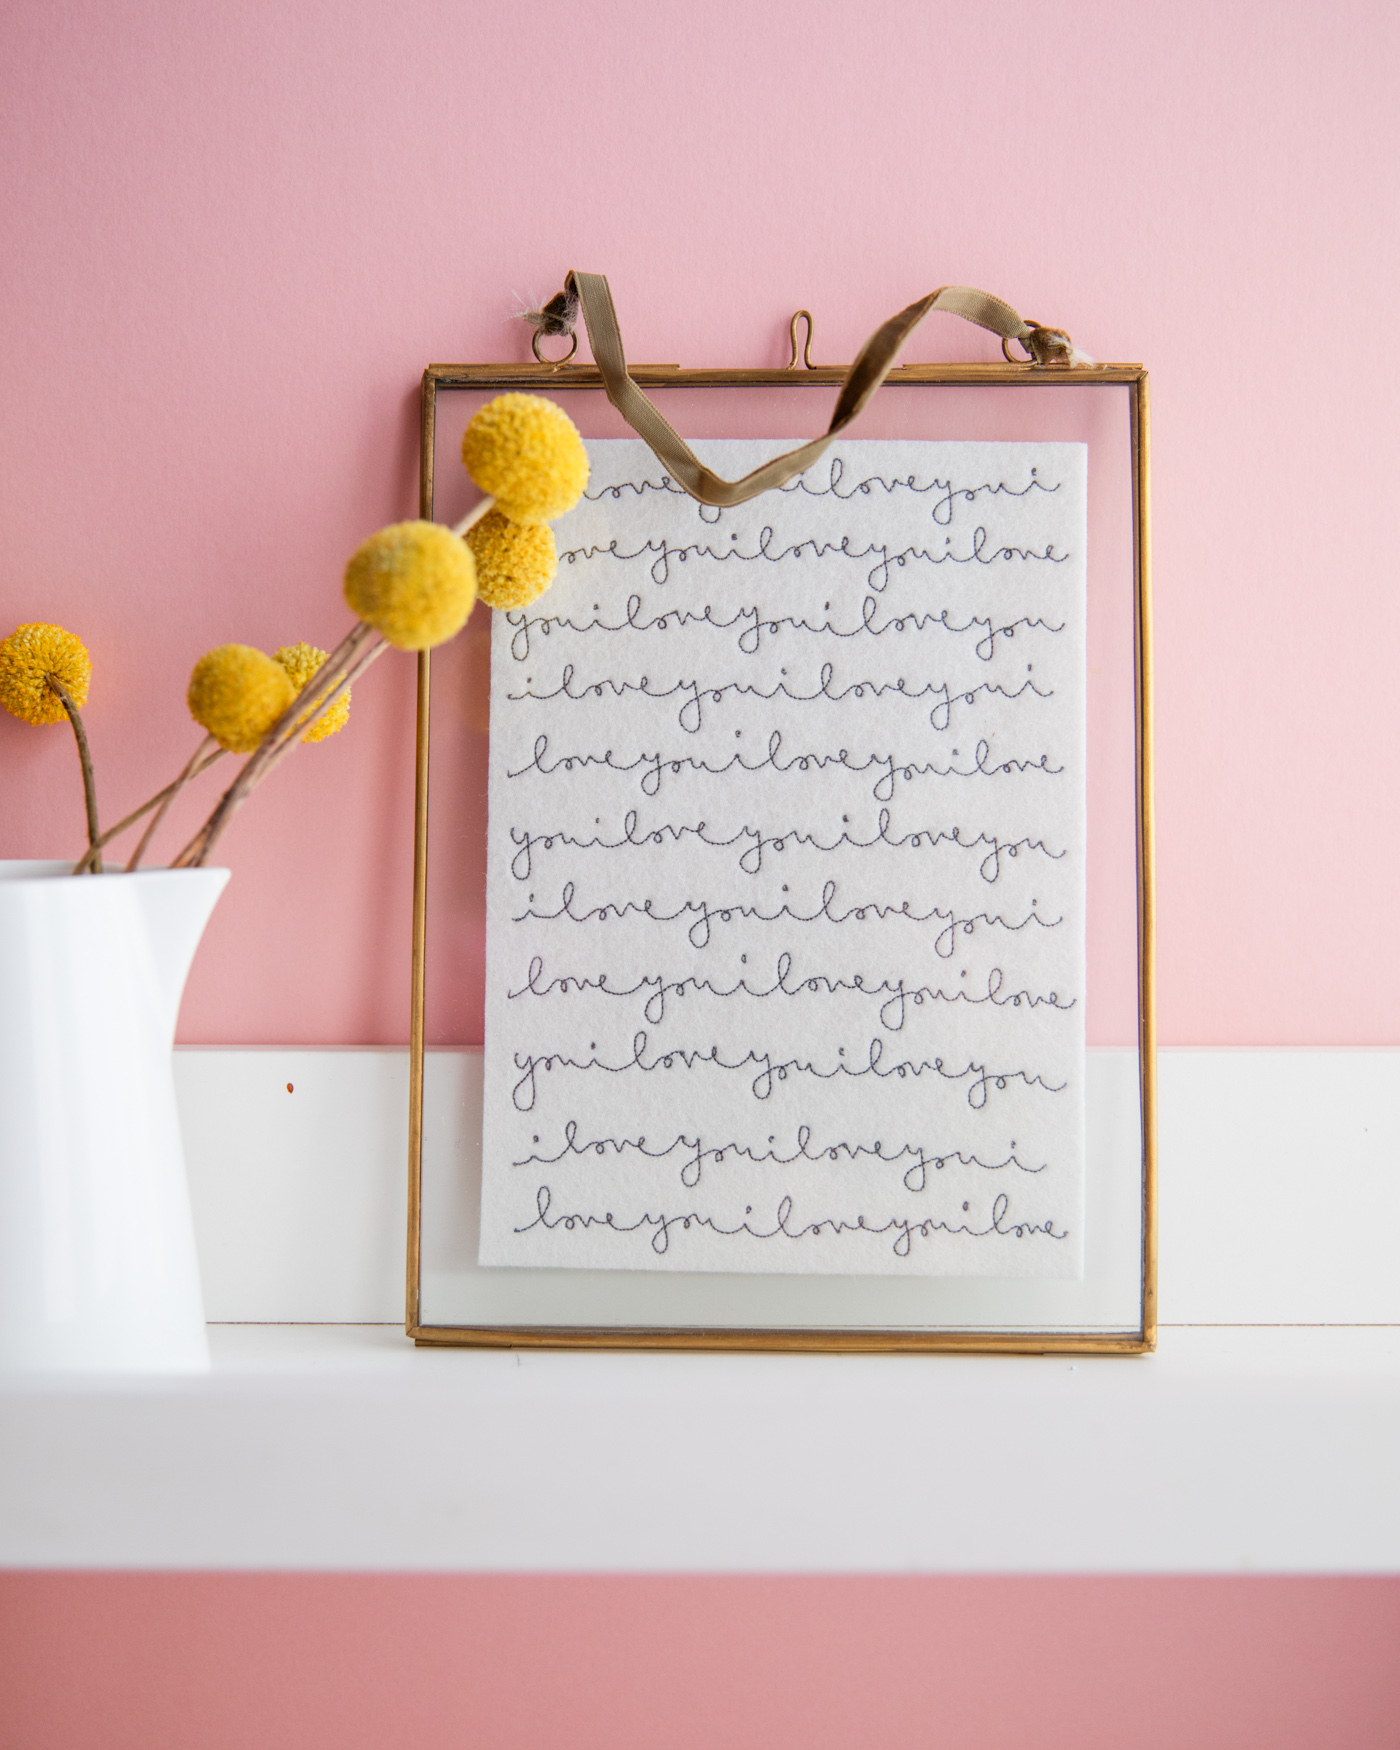 loveyouiloveyoui
oveyouiloveyouilove
youiloveyouiloveyou
iloveyouiloveyoui
loveyouiloveyouilove
youiloveyouiloveyou
iloveyouiloveyoui
loveyouiloveyouilove
youiloveyouiloveyou
iloveyouiloveyoui
loveyouiloveyouilove